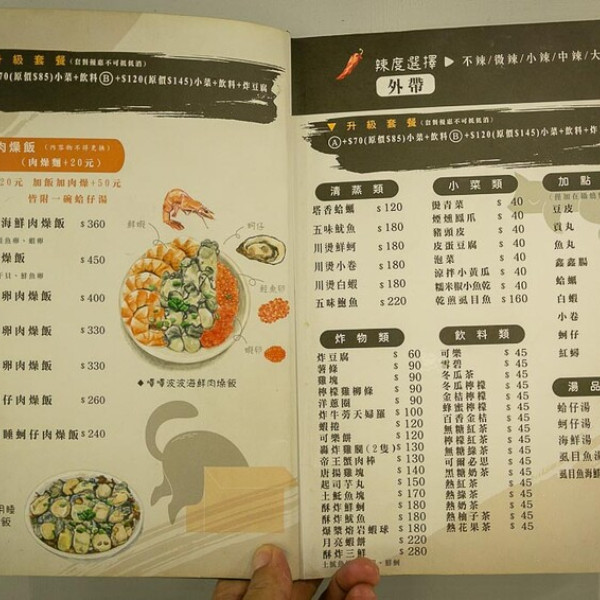 升級套餐(套餐優惠不可抵低消)
70(原價$85)小菜+飲料Ⓑ+$120(原價$145)小菜+飲料+炸豆腐
肉燥飯(內容物不得更換)
(肉燥麵+20元)
20元 加飯加肉燥+50元
皆附一碗蛤仔湯
海鮮肉燥飯 $360
燥飯 $450
卵肉燥飯 $400
卵肉燥飯 $330
卵肉燥飯 $330
仔肉燥飯 $260
蚵仔肉燥飯 $240
鮮蝦
蚵仔
鮭魚卵
蝦卵
◆嗶嗶波波海鮮肉燥飯
辣度選擇▶不辣/微辣/小辣/中辣/大
外帶
▼升級套餐(套餐優惠不可抵低消)
Ⓐ+$70(原價$85)小菜+飲料Ⓑ+$120(原價$145)小菜+飲料+炸
清蒸類
塔香蛤蠣 $120
五味魷魚 $180
川燙鮮蚵 $180
川燙小卷 $180
川燙白蝦 $180
五味鮑魚 $220
小菜類
燙青菜 $40
煙燻鳳爪 $40
豬頭皮 $40
皮蛋豆腐 $40
泡菜 $40
涼拌小黃瓜 $40
糯米椒小魚乾 $40
乾煎虱目魚 $160
加點
豆皮
貢丸
魚丸
鑫鑫腸
蛤蠣
白蝦
小卷
蚵仔
紅蟳
炸物類
炸豆腐 $60
薯條 $90
雞塊 $90
檸檬雞柳條 $90
洋蔥圈 $90
炸牛蒡天婦羅 $100
蝦捲 $120
可樂餅 $120
轟炸雞腿(2隻) $130
帝王蟹肉棒 $130
唐揚雞塊 $140
起司芋丸 $150
土魠魚塊 $170
酥炸鮮蚵 $180
酥炸魷魚 $180
爆漿熔岩蝦球 $180
月亮蝦餅 $220
酥炸三鮮 $280
飲料類
可樂 $45
雪碧 $45
冬瓜茶 $45
冬瓜檸檬 $45
金桔檸檬 $45
蜂蜜檸檬 $45
百香金桔 $45
無糖紅茶 $45
檸檬紅茶 $45
無糖綠茶 $45
可爾必思 $45
黑糖奶茶 $45
熱紅茶 $45
熱綠茶 $45
熱奶茶 $45
熱柚子茶 $45
熱花果茶 $45
湯品
蛤仔湯
蚵仔湯
海鮮湯
虱目魚湯
虱目魚海鮮